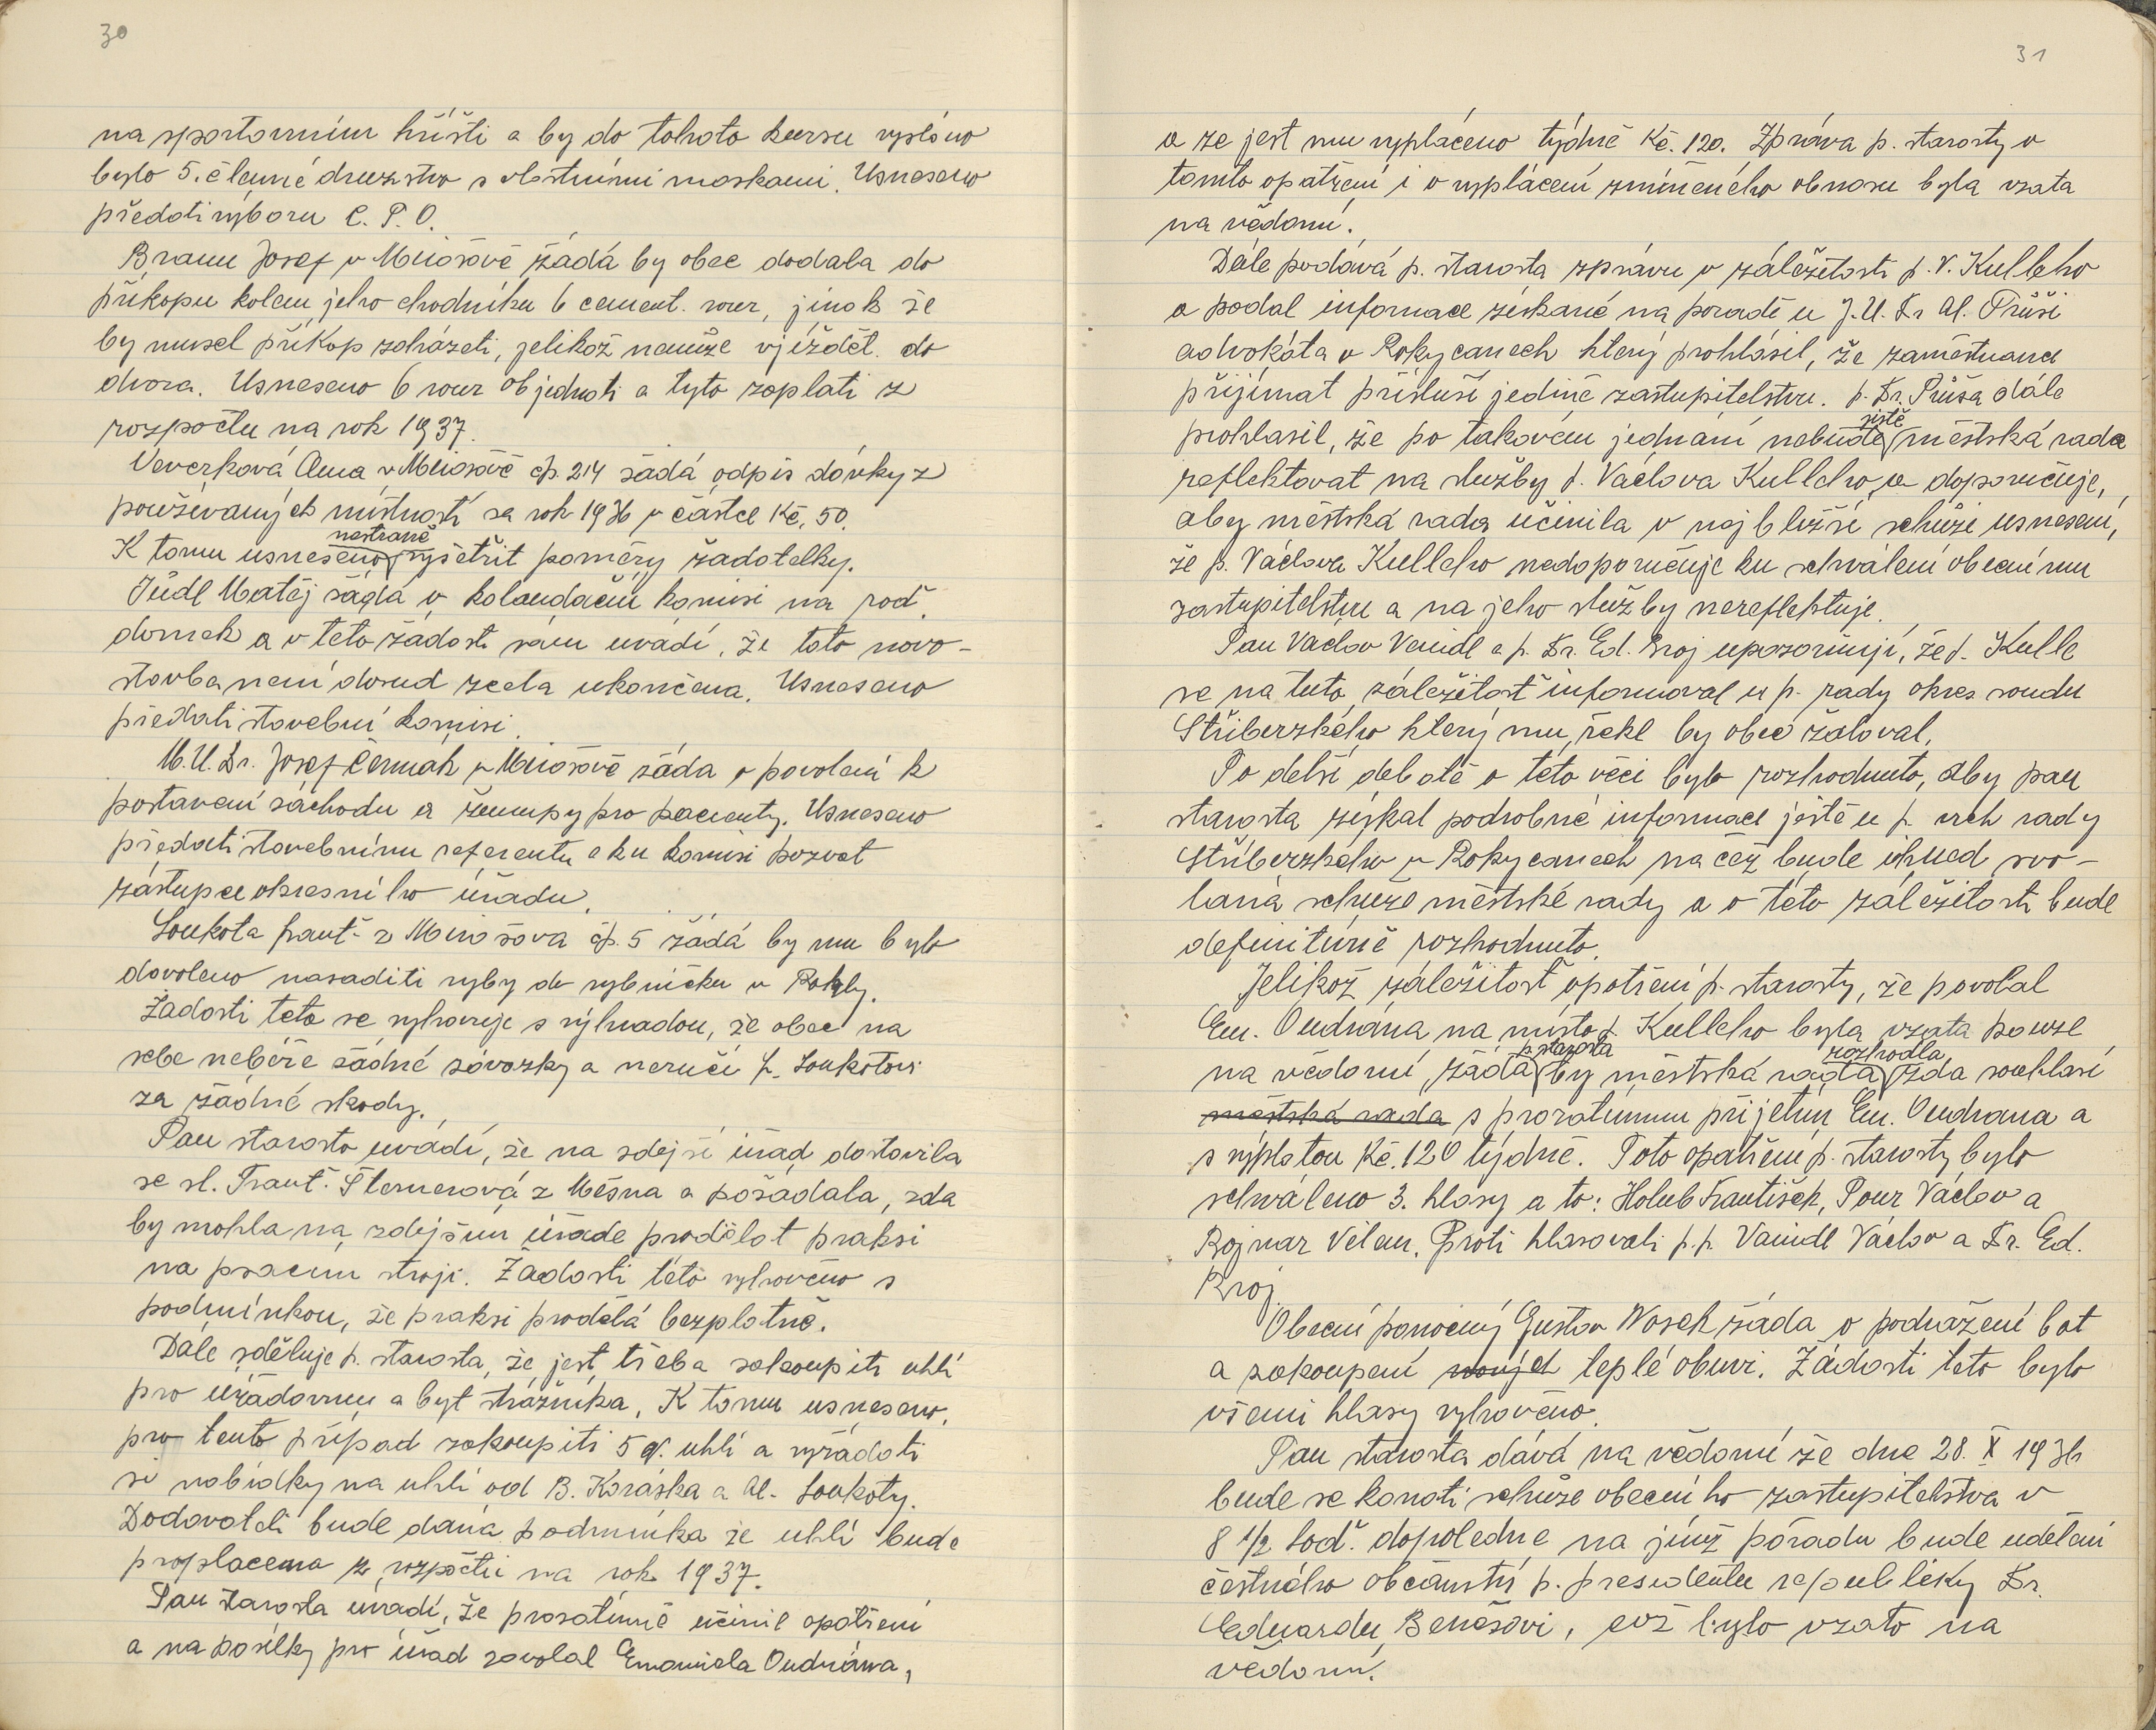 30
na sportovním hřišti a by do tohoto kursu vysláno
bylo 5. členné družstvo s vlastními maskami. Usneseno
předati výboru C. P. O.
Braum Josef v Mirošově žádá by obec dodala do
příkopu kolem jeho chodníku 6 cement. rour, jinak že
by musel příkop zaházeti, jelikož nemůže vjíždět do
dvora. Usneseno 6 rour objednati a tyto zaplatí z
rozpočtu na rok 1937.
Veverková Anna v Mirošově čp. 214 žádá odpis dávky z
používaných místností za rok 1936 v částce Kč. 50.
nestraně
K tomu usneseno vyšetřit poměry žadatelky.
Jůdl Matěj žádá o kolaudační komisi na rod.
domek a v této žádosti sám uvádí, že tato novo-
stavba není dosud zcela ukončena. Usneseno
předati stavební komisi.
M.U.Dr. Josef Čermák v Mirošově žádá o povolení k
postavení záchodu a žumpy pro pacienty. Usneseno
předati stavebnímu referentu a ku komisi pozvat
zástupce okresního úřadu.
Loukota Frant. z Mirošova čp. 5 žádá by mu bylo
dovoleno nasaditi ryby do rybníčku v Rokly.
Žádosti této se vyhovuje s výhradou, že obec na
sebe nebéře žádné závazky a neručí p. Loukotovi
za žádné škody.
Pan starosta uvádí, že na zdejší úřad dostavila
se sl. Frant. Šternerová z Měšna a požádala, zda
by mohla na zdejším úřadě prodělat praksi
na psacím stroji. Žádosti této vyhověno s
podmínkou, že praksi prodělá bezplatně.
Dále sděluje p. starosta, že jest třeba zakoupiti uhlí
pro úřadovnu a byt strážníka. K tomu usneseno,
pro tento případ zakoupiti 5 q. uhlí a vyžádati
si nabídky na uhlí od B. Koráska a Al. Loukoty.
Dodavateli bude dána podmínka že uhlí bude
proplacena z rozpočtu na rok 1937.
Pan starosta uvádí, že prozatímně učinil opatření
a na posilky pro úřad zavolal Emanuela Oudrána,
31
a že jest mu vypláceno týdně Kč. 120. Zpráva p. starosty o
tomto opatření i o vyplácení zmíněného obnosu byla vzata
na vědomí.
Dále podává p. starosta zprávu v záležitosti p. V. Kulleho
a podal informace získané na poradě u J.U.Dr Al. Průši
advokáta v Rokycanech který prohlásil, že zaměstnance
přijímat přísluší jedině zastupitelstvu. p. Dr. Průša dále
jistě
prohlásil, že po takovém jednání nebude městská rada
reflektovat na služby p. Václava Kulleho a doporučuje,
aby městská rada učinila v nejbližší schůzi usnesení,
že p. Václava Kulleho nedoporučuje ku schválení obecnímu
zastupitelstvu a na jeho služby nereflektuje.
Pan Václav Vaindl a p. Dr. Ed. Broj upozorňují, že p. Kulle
se na tuto záležitost informoval u p. rady okres. soudu
Stříberzkého který mu řekl by obec žaloval.
Po delší debatě o této věci bylo rozhodnuto, aby pan
starosta získal podrobné informace ještě u p. vrch rady
Stříberzkého v Rokycanech na čež bude ihned svo-
lána schůze městské rady a o této záležitosti bude
definitivně rozhodnuto.
Jelikož záležitost opatření p. starosty, že povolal
Em. Oudrána na místo p. Kulleho byla vzata pouze
p. starosta rozhodla
na vědomí, žádá by městská rada zda souhlasí
městská rada s prozatímním přijetím Em. Oudrana a
s výplatou Kč. 120 týdně. Toto opatření p. starosty bylo
schváleno 3. hlasy a to: Holub František, Pour Václav a
Rojnar Vilém. Proti hlasovali p.p. Vaindl Václav a Dr. Ed.
Broj.
Obecní pomocný Gustav Wosek žádá o podražení bot
a zakoupení nových teplé obuvi. Žádosti této bylo
všemi hlasy vyhověno.
Pan starosta dává na vědomí že dne 28. X 1936
bude se konati schůze obecního zastupitelstva v
8 1/2 hod. dopoledne na jímž pořadu bude udělení
čestného občanství p. presidentu republiky Dr.
Eduardu Benešovi, což bylo vzato na
vědomí.